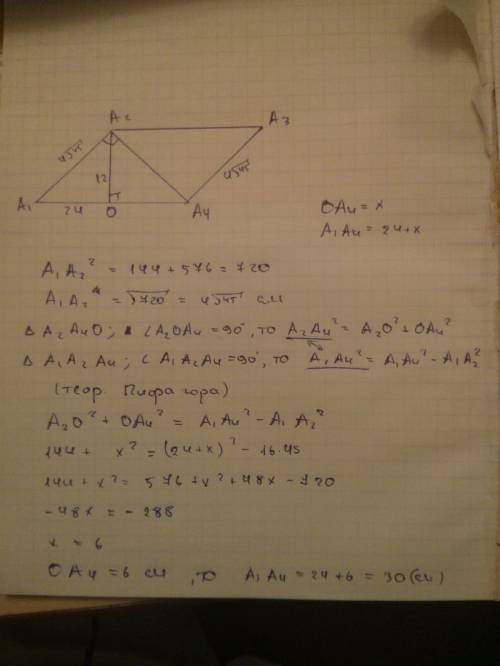 A₂
A₃
4√45
12
4√45
A₁
24
O
A₄
OA₄ = x
A₁A₄ = 24+x
A₁A₂² = 144 + 576 = 720
A₁A₂ = √720 = 4√45 см
△ A₂A₄O; ∠A₂OA₄ = 90°, то A₂A₄² = A₂O² + OA₄²
△ A₁A₂A₄; ∠A₁A₂A₄ = 90°, то A₂A₄² = A₁A₄² − A₁A₂²
(теор. Пифагора)
A₂O² + OA₄² = A₁A₄² − A₁A₂²
144 + x² = (24+x)² − 16·45
144 + x² = 576 + x² + 48x − 720
−48x = −288
x = 6
OA₄ = 6 см, то A₁A₄ = 24 + 6 = 30 (см)